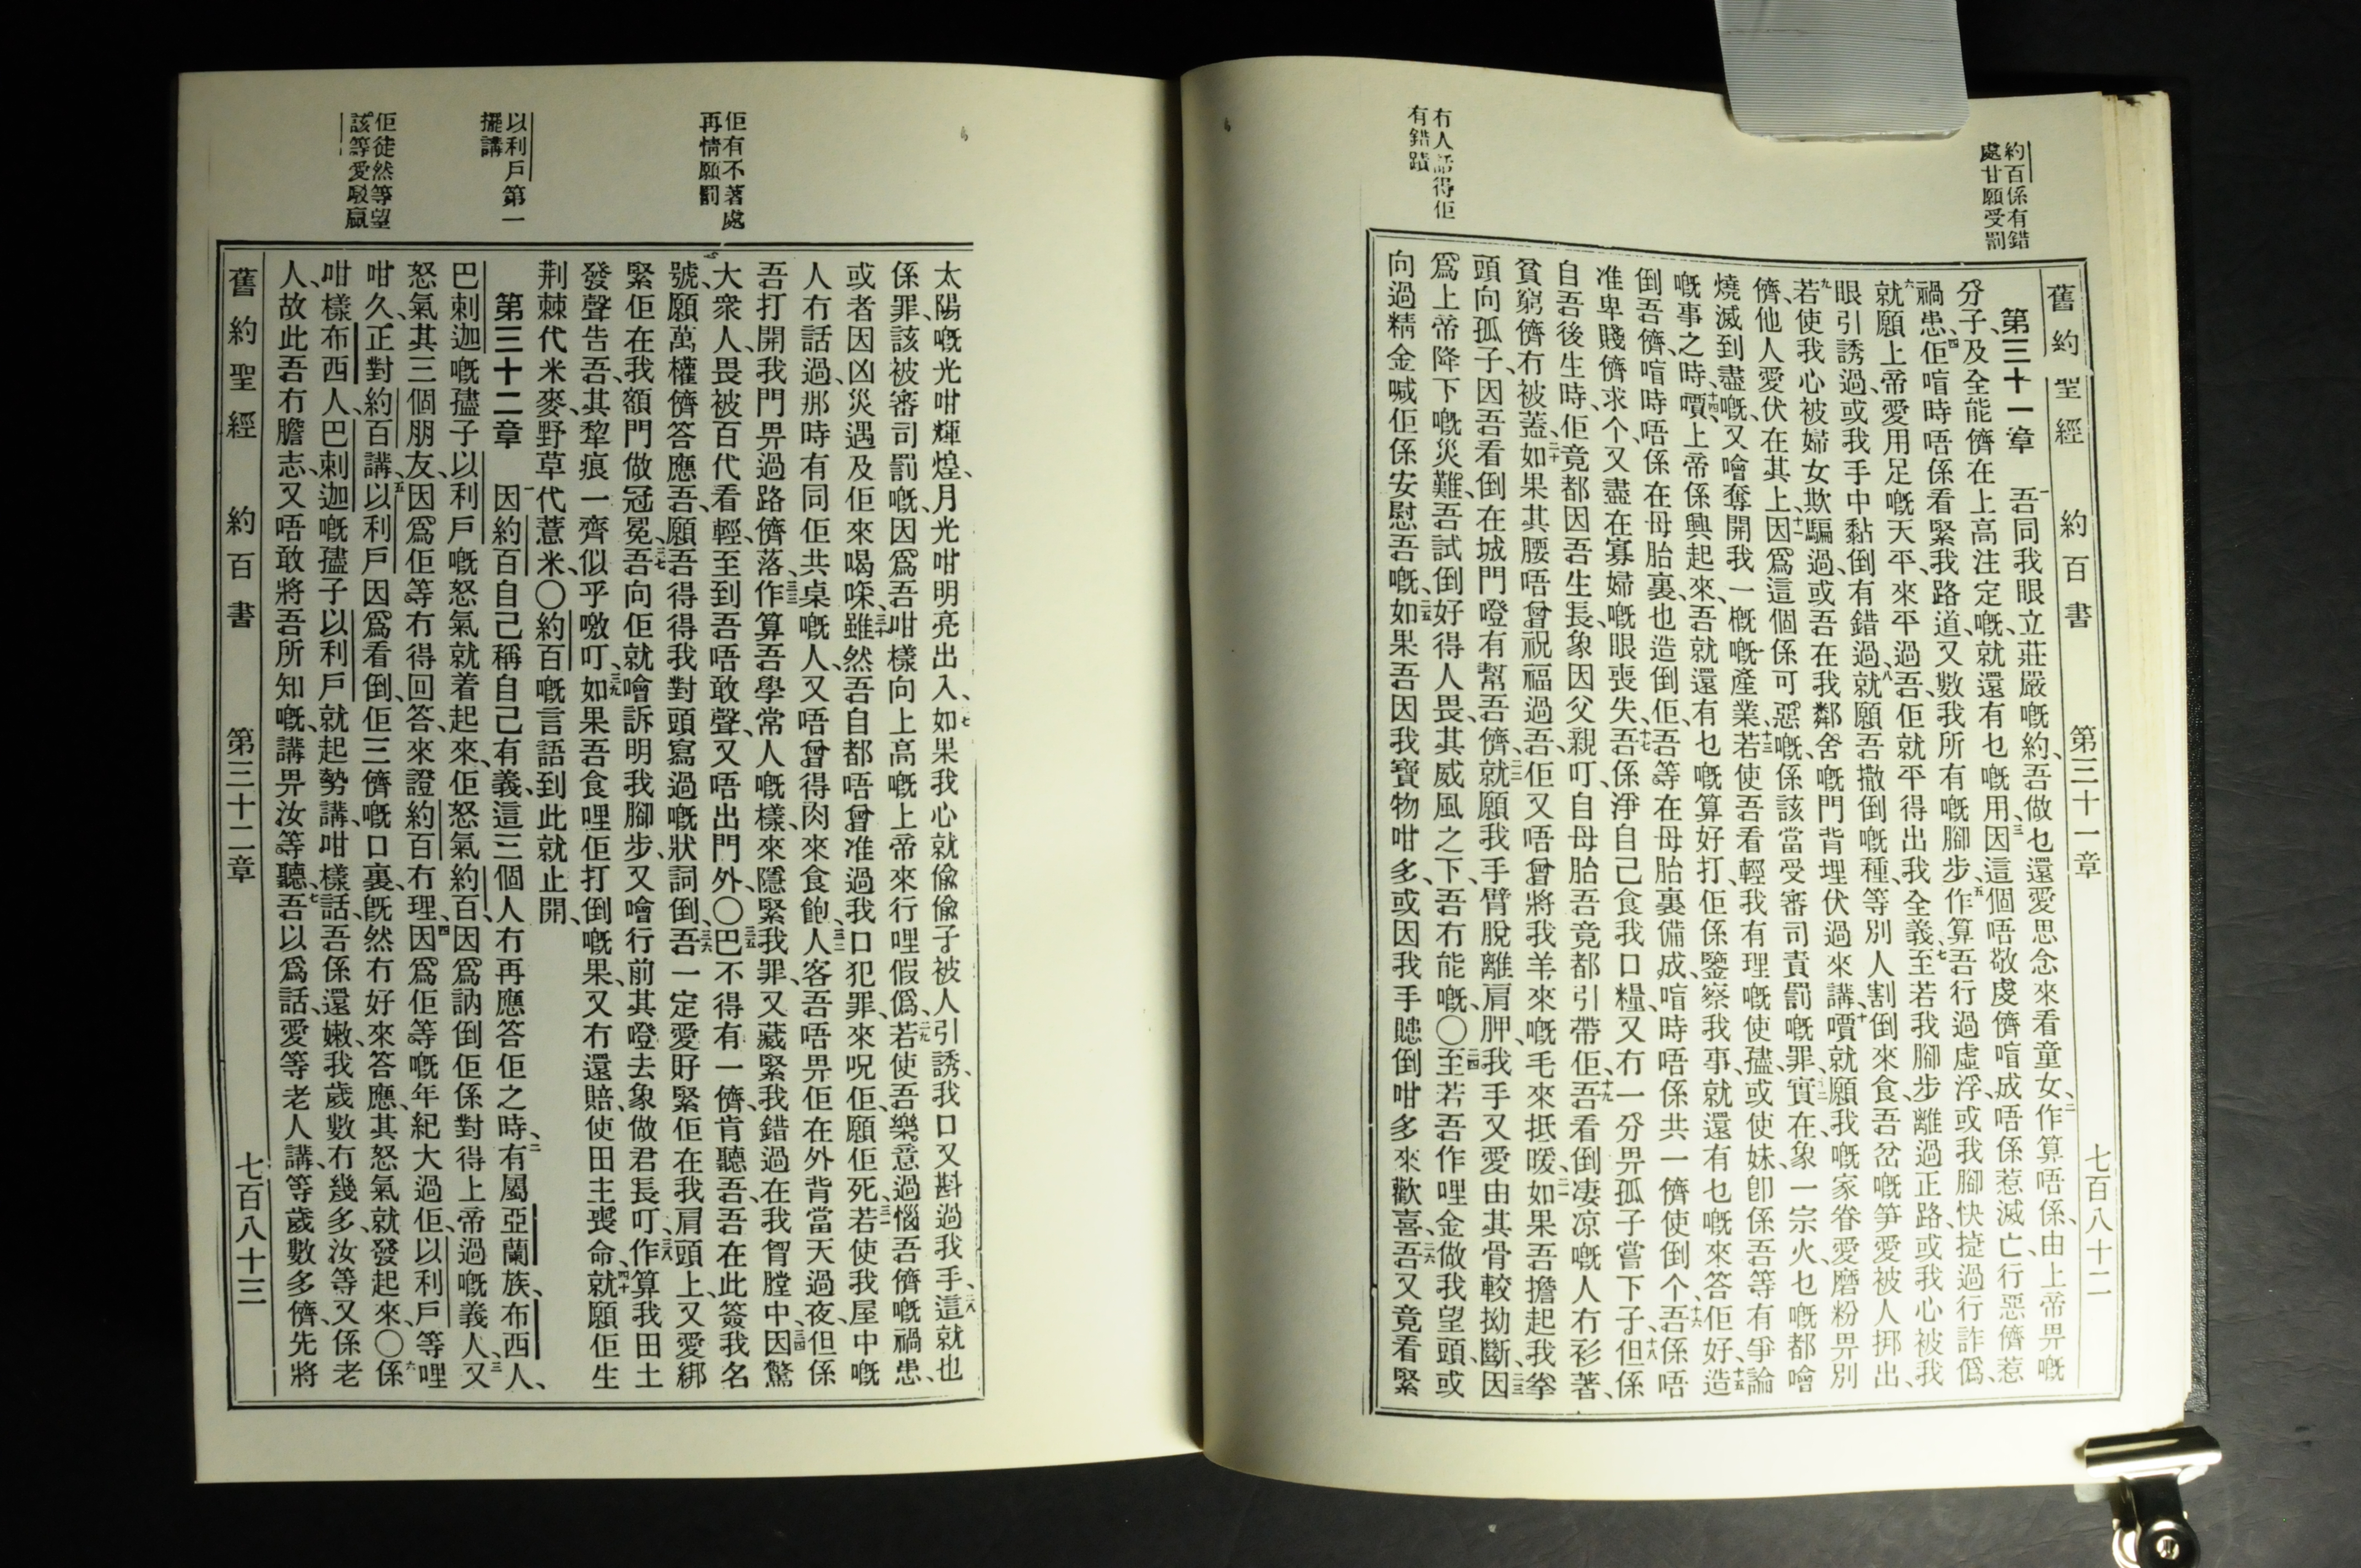 約百係有錯
處甘願受罰
冇人話得佢
有錯蹟
舊約聖經 約百書 第三十一章 七百八十二
第三十一章 一吾同我眼立莊嚴嘅約、吾做乜還愛思念來看童女、二作算唔係、由上帝畀嘅
分子、及全能儕在上高注定嘅、就還有乜嘅用、三因這個唔敬虔儕喧成唔係惹滅亡、行惡儕惹
禍患、四佢喧時唔係看緊我路道、又數我所有嘅腳步、五作算吾行過虛浮、或我腳快㨗過行詐僞、
六就願上帝愛用足嘅天平、來平過吾、佢就平得出我全義、七至若我腳步離過正路、或我心被我
眼引誘過、或我手中黏倒有錯過、八就願吾撒倒嘅種、等別人割倒來食、吾岔嘅笋愛被人挷出、
九若使我心被婦女欺騙過、或吾在我鄰舍嘅門背埋伏過來講、十嘪就願我嘅家眷、愛磨粉畀別
儕、他人愛伏在其上、十一因爲這個係可惡嘅、係該當受審司責罰嘅罪、十二實在、象一宗火乜嘅都噲
燒滅到盡嘅、又噲奪開我一概嘅產業、十三若使吾看輕我有理嘅使孻、或使妹、卽係吾等有爭論
嘅事之時、十四嘪、上帝係興起來、吾就還有乜嘅算好打、佢係鑒察我事、就還有乜嘅來答佢好、十五造
倒吾儕、喧時唔係在母胎裏、也造倒佢、吾等在母胎裏備成、喧時唔係共一儕使倒个、十六吾係唔
准卑賤儕求个、又盡在寡婦嘅眼喪失、十七吾係淨自己食我口糧、又冇一分畀孤子嘗下子、十八但係
自吾後生時、佢竟都因吾生長、象因父親叮、自母胎吾竟都引帶佢、十九吾看倒凄凉嘅人冇衫著、
貧窮儕冇被蓋、二十如果其腰唔曾祝福過吾、佢又唔曾將我羊來嘅毛來抵暖、二一如果吾擔起我拳
頭向孤子、因吾看倒在城門磴有幫吾儕、二二就願我手臂脫離肩胛、我手又愛由其骨較拗斷、二三因
爲上帝降下嘅災難、吾試倒好得人畏、其威風之下、吾冇能嘅、〇二四至若吾作哩金做我望頭、或
向過精金喊佢係安慰吾嘅、二五如果吾因我寶物咁多、或因我手贃倒咁多來歡喜、二六吾又竟看緊
佢有不著處
再情願罰
以利戶第一
擺講
佢徒然等望
該等愛駁贏
太陽嘅光咁輝煌、月光咁明亮出入、二七如果我心就偸偸子被人引誘、我口又斟過我手、二八這就也
係罪、該被審司罰嘅、因爲吾咁樣向上高嘅上帝來行哩假僞、二九若使吾樂意過惱吾儕嘅禍患、
或者因凶災遇及佢來喝㗎、三十雖然吾自都唔曾准過我口犯罪、來呪佢、願佢死、三一若使我屋中嘅
人冇話過、那時有同佢共桌嘅人、又唔曾得肉來食飽、三二人客吾唔畀佢在外背當天過夜、但係
吾打開我門畀過路儕落、三三作算吾學常人嘅樣、來隱緊我罪、又藏緊我錯過在我胷膛中、三四因驚
大衆人、畏被百代看輕、至到吾唔敢聲、又唔出門外、〇三五巴不得有一儕、肯聽吾、吾在此簽我名
號、願萬權儕答應吾、願吾得得我對頭寫過嘅狀詞倒、三六吾一定愛好緊佢在我肩頭上、又愛綁
緊佢在我額門做冠冕、三七吾向佢就噲訴明我腳步、又噲行前其磴去象做君長叮、三八作算我田土
發聲吿吾、其犂痕一齊似乎噭叮、三九如果吾食哩佢打倒嘅果、又冇還賠、使田主喪命、四十就願佢生
荆棘代米麥、野草代薏米、〇約百嘅言語到此就止開、
第三十二章 一因約百自己稱自己有義、這三個人冇再應答佢之時、二有屬亞蘭族、布西人、
巴刺迦嘅孻子以利戶嘅怒氣就着起來、佢怒氣約百、因爲訥倒佢係對得上帝過嘅義人、三又
怒氣其三個朋友、因爲佢等冇得回答、來證約百冇理、四因爲佢等嘅年紀大過佢、以利戶等哩
咁久、正對約百講、五以利戶因爲看倒、佢三儕嘅口裏、旣然冇好來答應、其怒氣就發起來、〇六係
咁樣布西人、巴刺迦嘅孻子以利戶就起勢講、咁樣話、吾係還嫩、我歲數冇幾多、汝等又係老
人、故此吾冇膽志、又唔敢將吾所知嘅、講畀汝等聽、七吾以爲話、愛等老人講、等歲數多儕、先將
舊約聖經 約百書 第三十二章 七百八十三